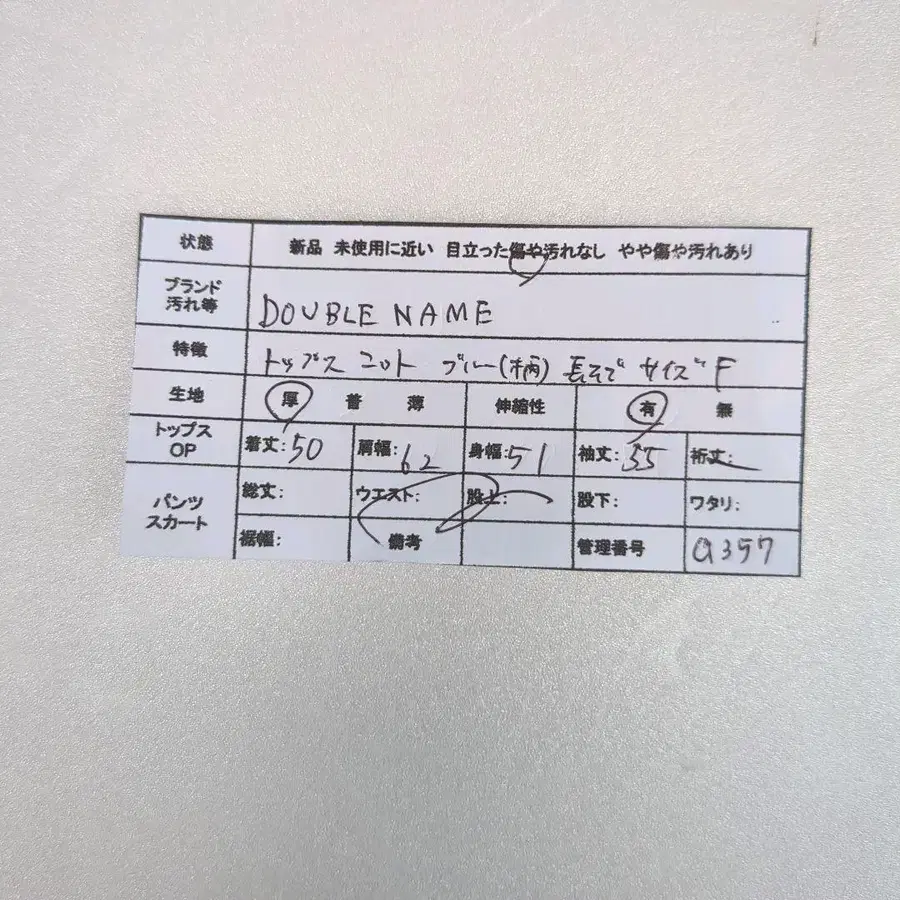 状態 新品 未使用に近い 目立った傷や汚れなし やや傷や汚れあり
ブランド
汚れ等
DOUBLE NAME
特徴 トップス ニット ブルー(柄) 長そで サイズ F
生地 厚 普 薄 伸縮性 有 無
トップス
OP
着丈:50 肩幅:62 身幅:51 袖丈:35 裄丈:
パンツ
スカート
総丈: ウエスト: 股上: 股下: ワタリ:
裾幅: 備考 管理番号 a397